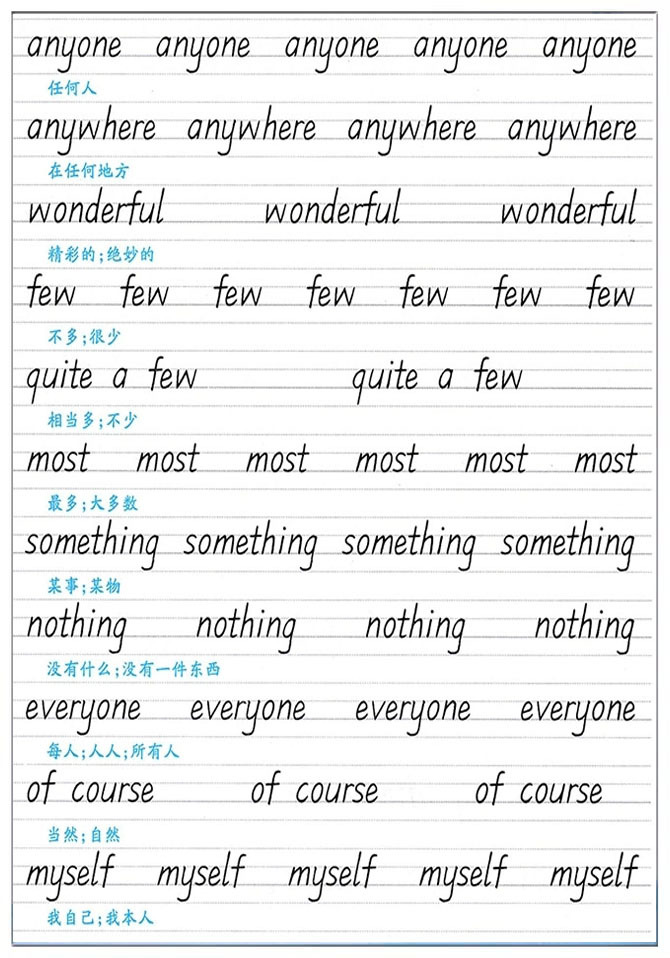 anyone anyone anyone anyone anyone
任何人
anywhere anywhere anywhere anywhere
在任何地方
wonderful wonderful wonderful
精彩的;绝妙的
few few few few few few few
不多;很少
quite a few quite a few
相当多;不少
most most most most most most
最多;大多数
something something something something
某事;某物
nothing nothing nothing nothing
没有什么;没有一件东西
everyone everyone everyone everyone
每人;人人;所有人
of course of course of course
当然;自然
myself myself myself myself myself
我自己;我本人